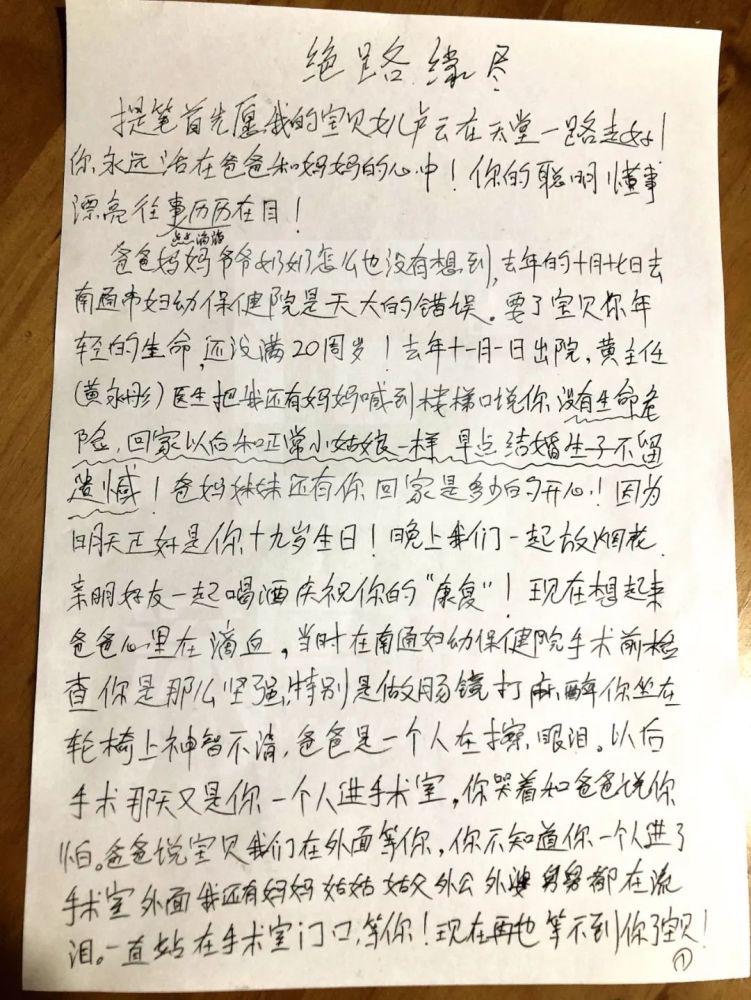 绝路缘尽
提笔首先愿我的宝贝女儿芦云在天堂一路走好!
你永远活在爸爸和妈妈的心中!你的聪明懂事
漂亮往事历历在目!
点点滴滴
爸爸妈妈爷爷奶奶怎么也没有想到,去年的十月十七日去
南通市妇幼保健院是天大的错误。要了宝贝你年
轻的生命,还没满20周岁!去年十一月一日出院,黄主任
(黄永彤)医生把我还有妈妈喊到楼梯口说你没有生命危
险,回家以后和正常小姑娘一样 早点结婚生子不留
遗憾!爸妈妹妹还有你回家是多少的开心!因为
明天正好是你十九岁生日!晚上我们一起放烟花.
亲朋好友一起喝酒庆祝你的"康复"!现在想起来
爸爸心里在滴血,当时在南通妇幼保健院手术前检
查你是那么坚强,特别是做肠镜打麻醉你坐在
轮椅上神智不清,爸爸是一个人在擦眼泪。以后
手术那天又是你一个人进手术室,你哭着和爸爸说你
怕。爸爸说宝贝我们在外面等你,你不知道你一个人进了
手术室外面我还有妈妈姑姑姑父外公外婆舅舅都在流
泪。一直站在手术室门口,等你!现在再也等不到你了宝贝!
①